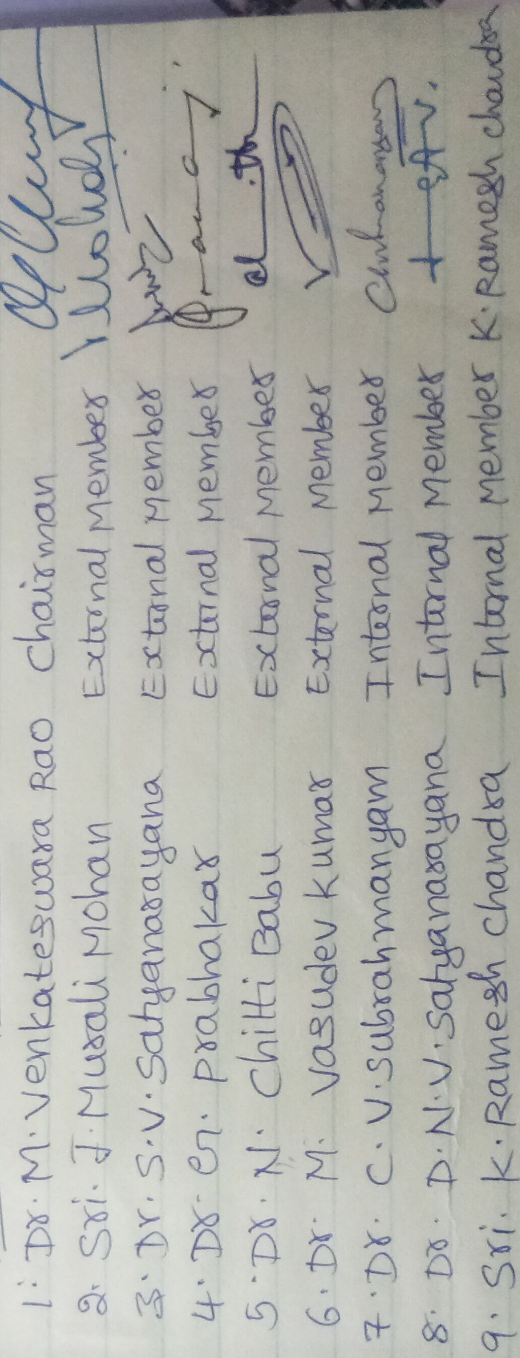 1. Dr. M. Venkateswara Rao Chairman
2. Sri. J. Murali Mohan External Member
3. Dr. S. V. Satyanarayana External Member
4. Dr. G. Prabhakar External Member
5. Dr. N. Chitti Babu External Member
6. Dr. M. Vasudev Kumar External Member
7. Dr. C. V. Subrahmanyam Internal Member
8. Dr. D. N. V. Satyanarayana Internal Member
9. Sri. K. Ramesh Chandra Internal Member K. Ramesh Chandra